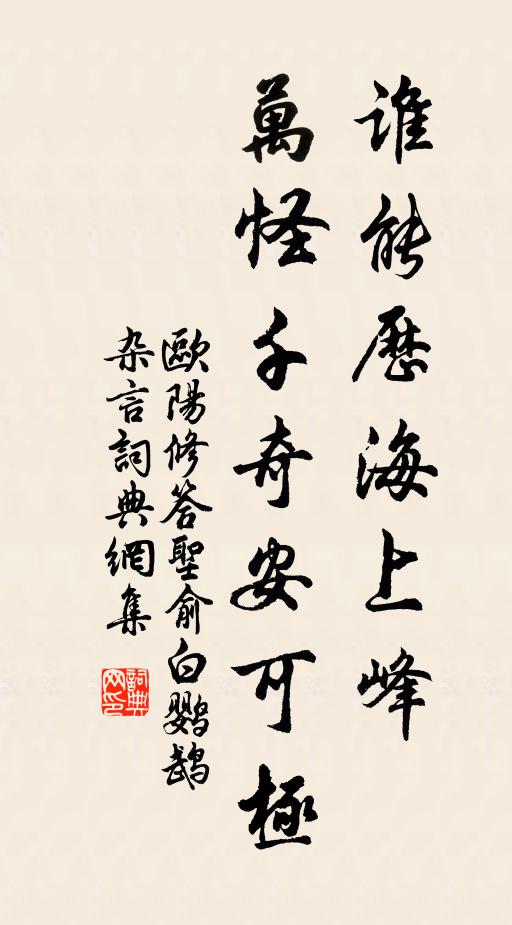 誰能歷海上峰
萬怪千奇安可極
歐陽修答聖俞白鹦鵡
杂言詞典網集
詞典网印